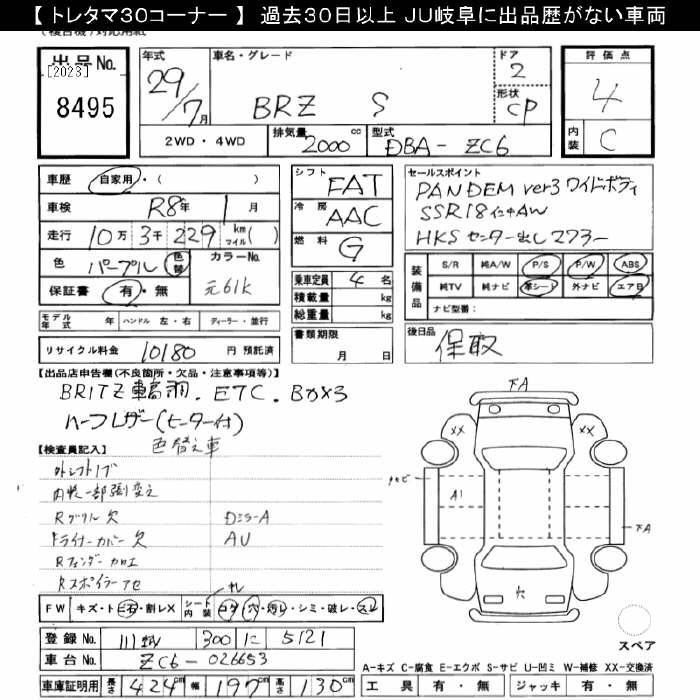 【トレタマ30コーナー】 過去30日以上 JU岐阜に出品歴がない車両
出品No.
[2023]
8495
年式 29/7月
車名・グレード BRZ S
ドア 2
形状 CP
評価点 4
内装 C
2WD・4WD
排気量 2000 cc
型式 DBA-ZC6
車歴 自家用・( )
車検 R8年 1月
走行 10万3千229 km マイル( )
色 パープル 色替
カラーNo. 元61K
保証書 有・無
シフト FAT
冷房 AAC
燃料 G
乗車定員 4名
積載量 kg
総重量 kg
書類期限 月 日
セールスポイント
PANDEM ver3 ワイドボディ
SSR18インチAW
HKSセンター出しマフラー
装備品 S/R 純A/W P/S P/W ABS
純TV 純ナビ 革シート 外ナビ エアB
ナビ型番:
モデル年式 年 ハンドル 左・右 ディーラー・並行
リサイクル料金 10180 円 預託済
後日品 保取
【出品店申告欄(不良箇所・欠品・注意事項等)】
BRITZ車高調. ETC. Bカメラ
ハーフレザー(ヒーター付)
色替え車
【検査員記入】
外シフトノブ
内装一部張変え
Rグリル欠 DミラーA
ドライナーカバー欠 AU
Rフェンダー加工
Rスポイラー
FW キズ・ト石・割レX
シート内装 コゲ・穴・汚レ・シミ・破レ・スレ
登録No. 300 に 5121
車台No. ZC6-026653
車庫証明用 長さ 424cm 幅 197cm 高さ 130cm
下A
XX XX
A1
下A
穴
スペア
A-キズ C-腐食 E-エクボ S-サビ U-凹ミ W-補修 XX-交換済
工具 有・無 ジャッキ 有・無